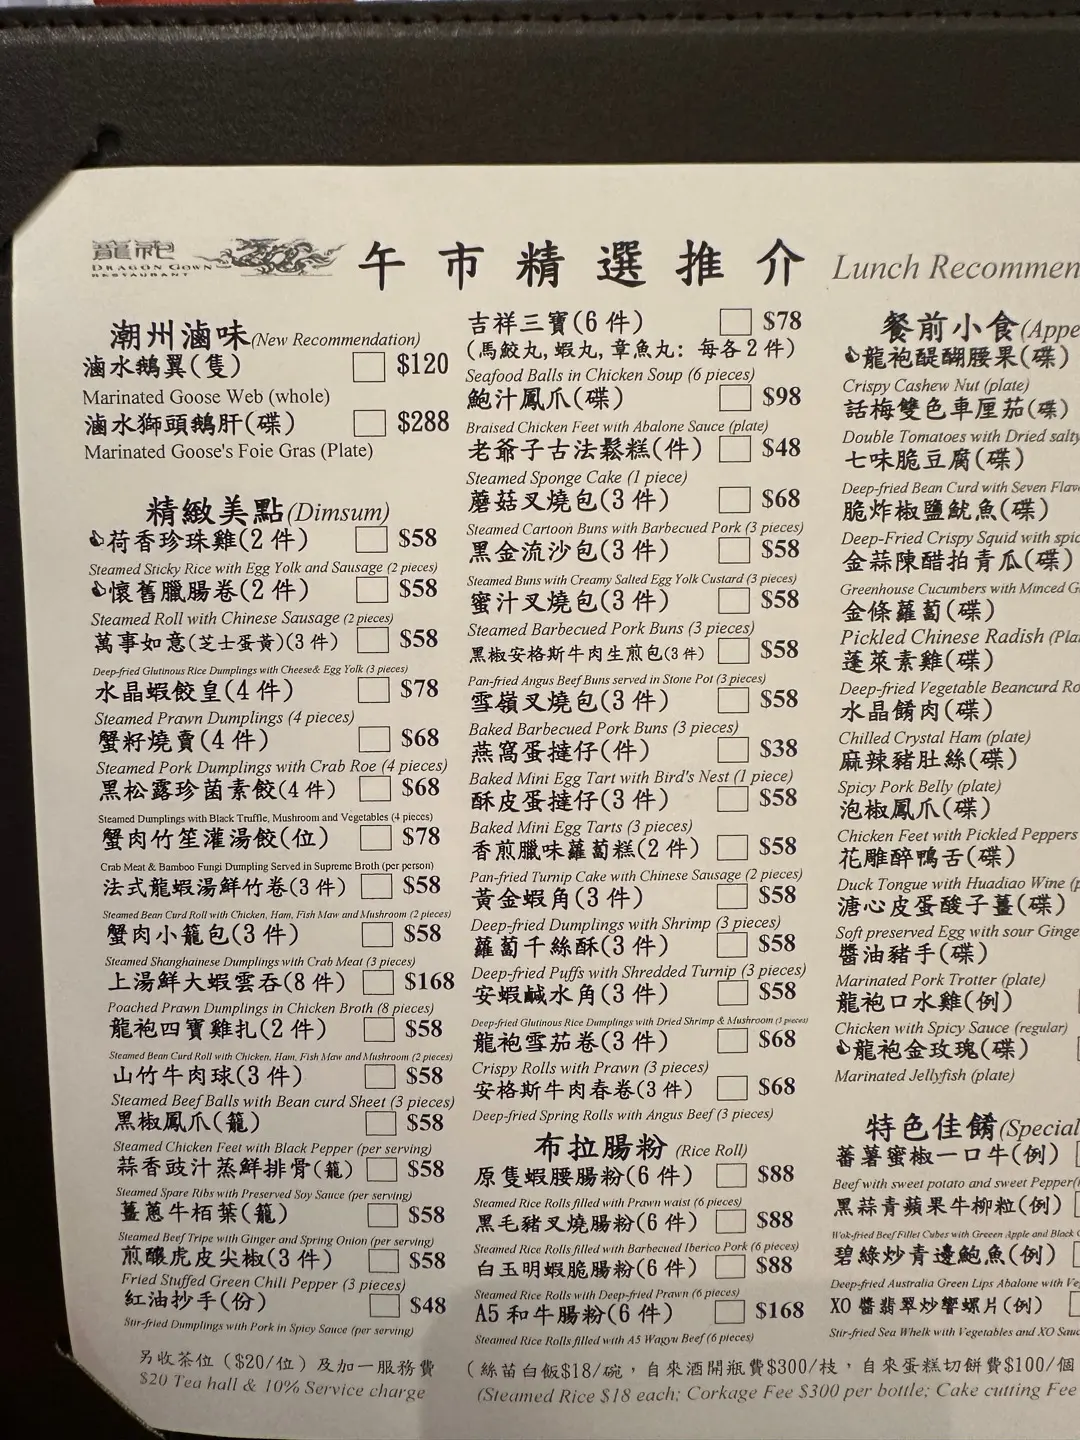 龍袍
DRAGON GOWN
RESTAURANT
午市精選推介 Lunch Recommen
潮州滷味(New Recommendation)
滷水鵝翼(隻) $120
Marinated Goose Web (whole)
滷水獅頭鵝肝(碟) $288
Marinated Goose's Foie Gras (Plate)
精緻美點(Dimsum)
荷香珍珠雞(2件) $58
Steamed Sticky Rice with Egg Yolk and Sausage (2 pieces)
懷舊臘腸卷(2件) $58
Steamed Roll with Chinese Sausage (2 pieces)
萬事如意(芝士蛋黃)(3件) $58
Deep-fried Glutinous Rice Dumplings with Cheese& Egg Yolk (3 pieces)
水晶蝦餃皇(4件) $78
Steamed Prawn Dumplings (4 pieces)
蟹籽燒賣(4件) $68
Steamed Pork Dumplings with Crab Roe (4 pieces)
黑松露珍菌素餃(4件) $68
Steamed Dumplings with Black Truffle, Mushroom and Vegetables (4 pieces)
蟹肉竹笙灌湯餃(位) $78
Crab Meat & Bamboo Fungi Dumpling Served in Supreme Broth (per person)
法式龍蝦湯鮮竹卷(3件) $58
Steamed Bean Curd Roll with Chicken, Ham, Fish Maw and Mushroom (2 pieces)
蟹肉小籠包(3件) $58
Steamed Shanghainese Dumplings with Crab Meat (3 pieces)
上湯鮮大蝦雲吞(8件) $168
Poached Prawn Dumplings in Chicken Broth (8 pieces)
龍袍四寶雞扎(2件) $58
Steamed Bean Curd Roll with Chicken, Ham, Fish Maw and Mushroom (2 pieces)
山竹牛肉球(3件) $58
Steamed Beef Balls with Bean curd Sheet (3 pieces)
黑椒鳳爪(籠) $58
Steamed Chicken Feet with Black Pepper (per serving)
蒜香豉汁蒸鮮排骨(籠) $58
Steamed Spare Ribs with Preserved Soy Sauce (per serving)
薑蔥牛栢葉(籠) $58
Steamed Beef Tripe with Ginger and Spring Onion (per serving)
煎釀虎皮尖椒(3件) $58
Fried Stuffed Green Chili Pepper (3 pieces)
紅油抄手(份) $48
Stir-fried Dumplings with Pork in Spicy Sauce (per serving)
另收茶位($20/位)及加一服務費
$20 Tea hall & 10% Service charge
吉祥三寶(6件) $78
(馬鮫丸,蝦丸,章魚丸:每各2件)
Seafood Balls in Chicken Soup (6 pieces)
鮑汁鳳爪(碟) $98
Braised Chicken Feet with Abalone Sauce (plate)
老爺子古法鬆糕(件) $48
Steamed Sponge Cake (1 piece)
蘑菇叉燒包(3件) $68
Steamed Cartoon Buns with Barbecued Pork (3 pieces)
黑金流沙包(3件) $58
Steamed Buns with Creamy Salted Egg Yolk Custard (3 pieces)
蜜汁叉燒包(3件) $58
Steamed Barbecued Pork Buns (3 pieces)
黑椒安格斯牛肉生煎包(3件) $58
Pan-fried Angus Beef Buns served in Stone Pot (3 pieces)
雪嶺叉燒包(3件) $58
Baked Barbecued Pork Buns (3 pieces)
燕窩蛋撻仔(件) $38
Baked Mini Egg Tart with Bird's Nest (1 piece)
酥皮蛋撻仔(3件) $58
Baked Mini Egg Tarts (3 pieces)
香煎臘味蘿蔔糕(2件) $58
Pan-fried Turnip Cake with Chinese Sausage (2 pieces)
黃金蝦角(3件) $58
Deep-fried Dumplings with Shrimp (3 pieces)
蘿蔔千絲酥(3件) $58
Deep-fried Puffs with Shredded Turnip (3 pieces)
安蝦鹹水角(3件) $58
Deep-fried Glutinous Rice Dumplings with Dried Shrimp & Mushroom (3 pieces)
龍袍雪茄卷(3件) $68
Crispy Rolls with Prawn (3 pieces)
安格斯牛肉春卷(3件) $68
Deep-fried Spring Rolls with Angus Beef (3 pieces)
布拉腸粉 (Rice Roll)
原隻蝦腰腸粉(6件) $88
Steamed Rice Rolls filled with Prawn waist (6 pieces)
黑毛豬叉燒腸粉(6件) $88
Steamed Rice Rolls filled with Barbecued Iberico Pork (6 pieces)
白玉明蝦脆腸粉(6件) $88
Steamed Rice Rolls with Deep-fried Prawn (6 pieces)
A5和牛腸粉(6件) $168
Steamed Rice Rolls filled with A5 Wagyu Beef (6 pieces)
(絲苗白飯$18/碗,自來酒開瓶費$300/枝,自來蛋糕切餅費$100/個
(Steamed Rice $18 each; Corkage Fee $300 per bottle; Cake cutting Fee
餐前小食(Appe
龍袍醍醐腰果(碟)
Crispy Cashew Nut (plate)
話梅雙色車厘茄(碟)
Double Tomatoes with Dried salty
七味脆豆腐(碟)
Deep-fried Bean Curd with Seven Flav
脆炸椒鹽魷魚(碟)
Deep-Fried Crispy Squid with spic
金蒜陳醋拍青瓜(碟)
Greenhouse Cucumbers with Minced G
金條蘿蔔(碟)
Pickled Chinese Radish (Pla
蓬萊素雞(碟)
Deep-fried Vegetable Beancurd Ro
水晶餚肉(碟)
Chilled Crystal Ham (plate)
麻辣豬肚絲(碟)
Spicy Pork Belly (plate)
泡椒鳳爪(碟)
Chicken Feet with Pickled Peppers
花雕醉鴨舌(碟)
Duck Tongue with Huadiao Wine (p
溏心皮蛋酸子薑(碟)
Soft preserved Egg with sour Ginge
醬油豬手(碟)
Marinated Pork Trotter (plate)
龍袍口水雞(例)
Chicken with Spicy Sauce (regular)
龍袍金玫瑰(碟)
Marinated Jellyfish (plate)
特色佳餚(Special
蕃薯蜜椒一口牛(例)
Beef with sweet potato and sweet Pepper(
黑蒜青蘋果牛柳粒(例)
Wok-fried Beef Fillet Cubes with Greeen Apple and Black G
碧綠炒青邊鮑魚(例)
Deep-fried Australia Green Lips Abalone with Ve
XO醬翡翠炒響螺片(例)
Stir-fried Sea Whelk with Vegetables and XO Sauc